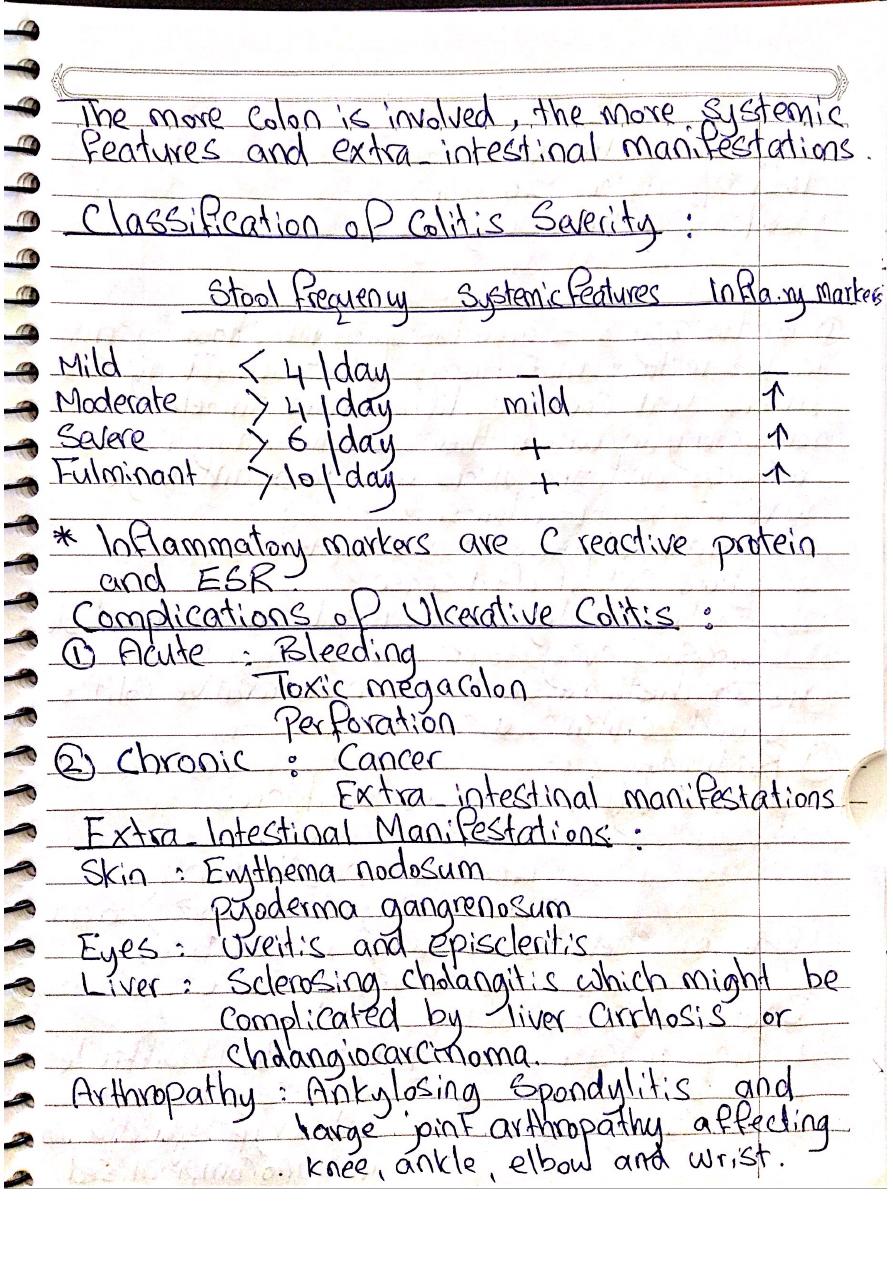 The more colon is involved, the more systemic
features and extra-intestinal manifestations.
Classification of Colitis Severity :
Stool frequency Systemic features Infla.ry Markers
Mild < 4 / day – –
Moderate > 4 / day mild ↑
Severe > 6 / day + ↑
Fulminant > 10 / day + ↑
* Inflammatory markers are C reactive protein
and ESR.
Complications of Ulcerative Colitis :
① Acute : Bleeding
Toxic megacolon
Perforation
② Chronic : Cancer
Extra-intestinal manifestations
Extra-Intestinal Manifestations :
Skin : Erythema nodosum
pyoderma gangrenosum
Eyes : Uveitis and episcleritis
Liver : Sclerosing cholangitis which might be
complicated by liver cirrhosis or
cholangiocarcinoma.
Arthropathy : Ankylosing Spondylitis and
large joint arthropathy affecting
knee, ankle, elbow and wrist.